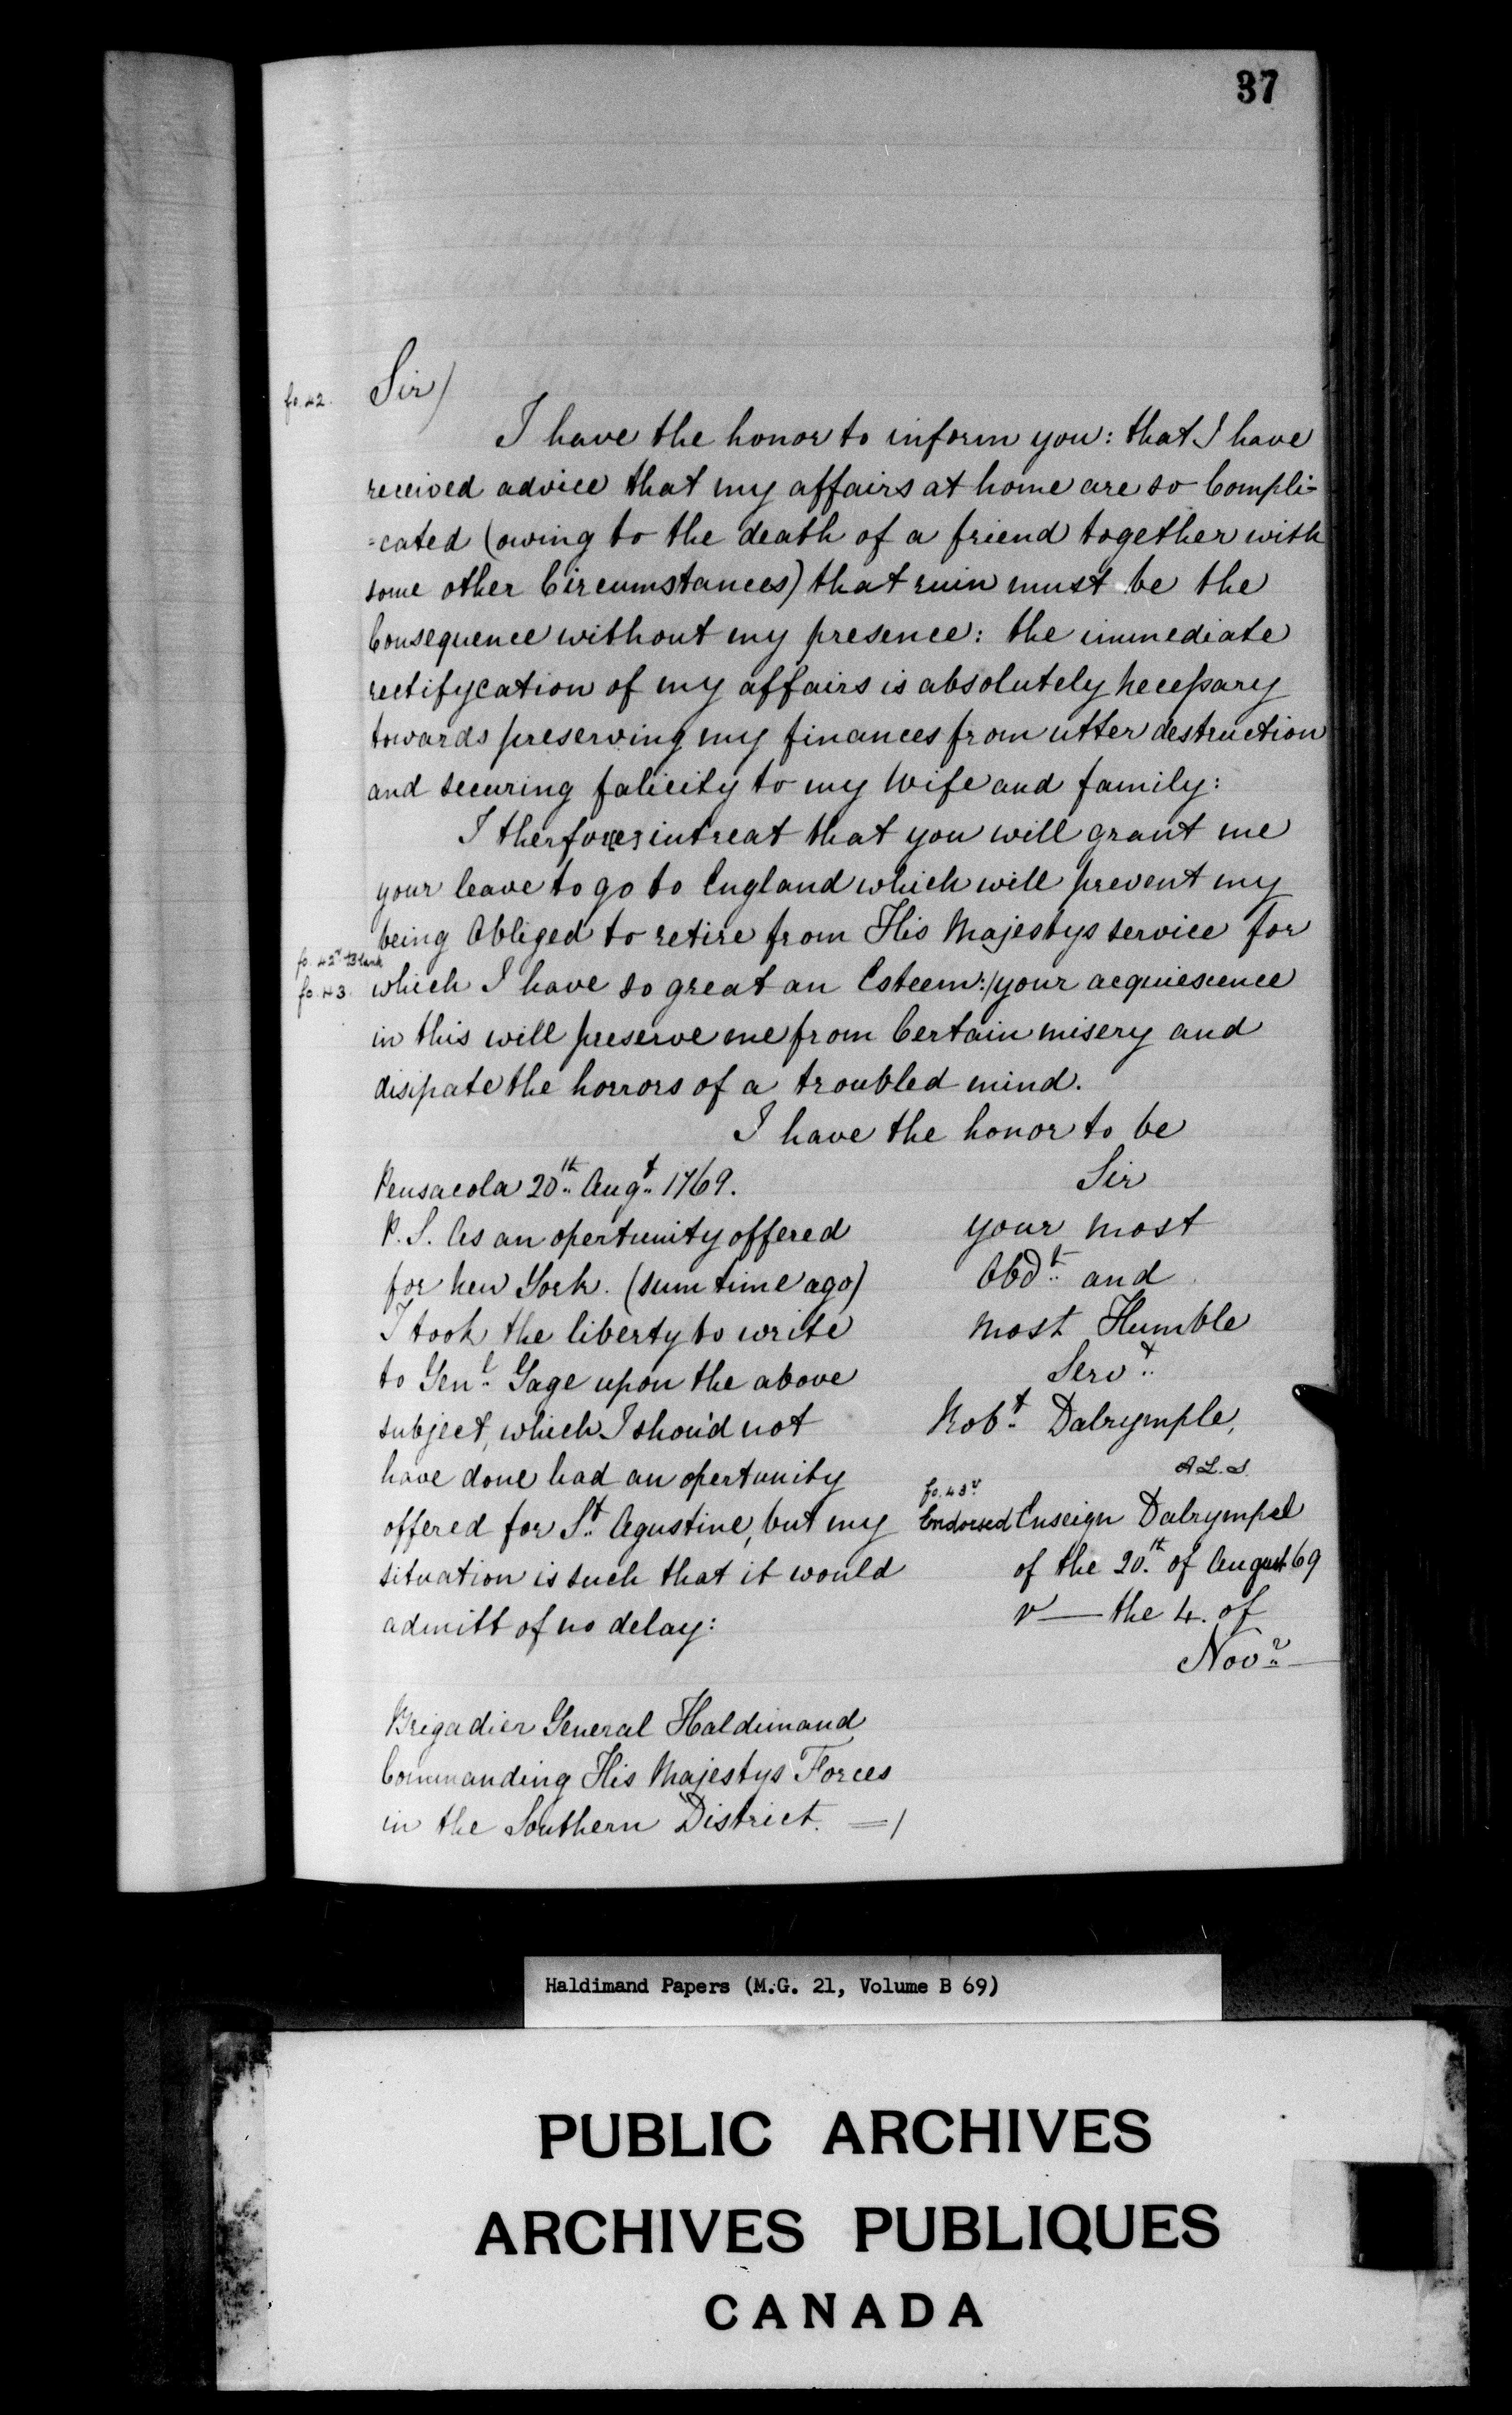 37
fo. 42.
Sir/
I have the honor to inform you: that I have
received advice that my affairs at home are so Compli=
=cated (owing to the death of a friend together with
some other Circumstances) that ruin must be the
Consequence without my presence: the immediate
rectifycation of my affairs is absolutely necessary
towards preserving my finances from utter destruction
and securing falicity to my Wife and family:
I therfore intreat that you will grant me
your leave to go to England which will prevent my
being Obliged to retire from His Majestys service for
fo. 42v Blank
fo. 43.
which I have so great an Esteem:/your acquiescence
in this will preserve me from Certain misery and
disipate the horrors of a troubled mind.
I have the honor to be
Sir
your most
Obdt and
most Humble
Servt
Robt Dalrymple,
A.L.S.
Pensacola 20th Augt 1769.
P.S. As an opertunity offered
for New York. (sum time ago)
I took the liberty to write
to Genl Gage upon the above
subject, which I shou'd not
have done had an opertunity
offered for St Agustine, but my
situation is such that it would
admitt of no delay:
fo. 43v
Endorsed Enseign Dalrympel
of the 20th of August 69
r — the 4. of
Novr
Brigadier General Haldimand
Commanding His Majestys Forces
in the Southern District. =/
Haldimand Papers (M.G. 21, Volume B 69)
PUBLIC ARCHIVES
ARCHIVES PUBLIQUES
CANADA